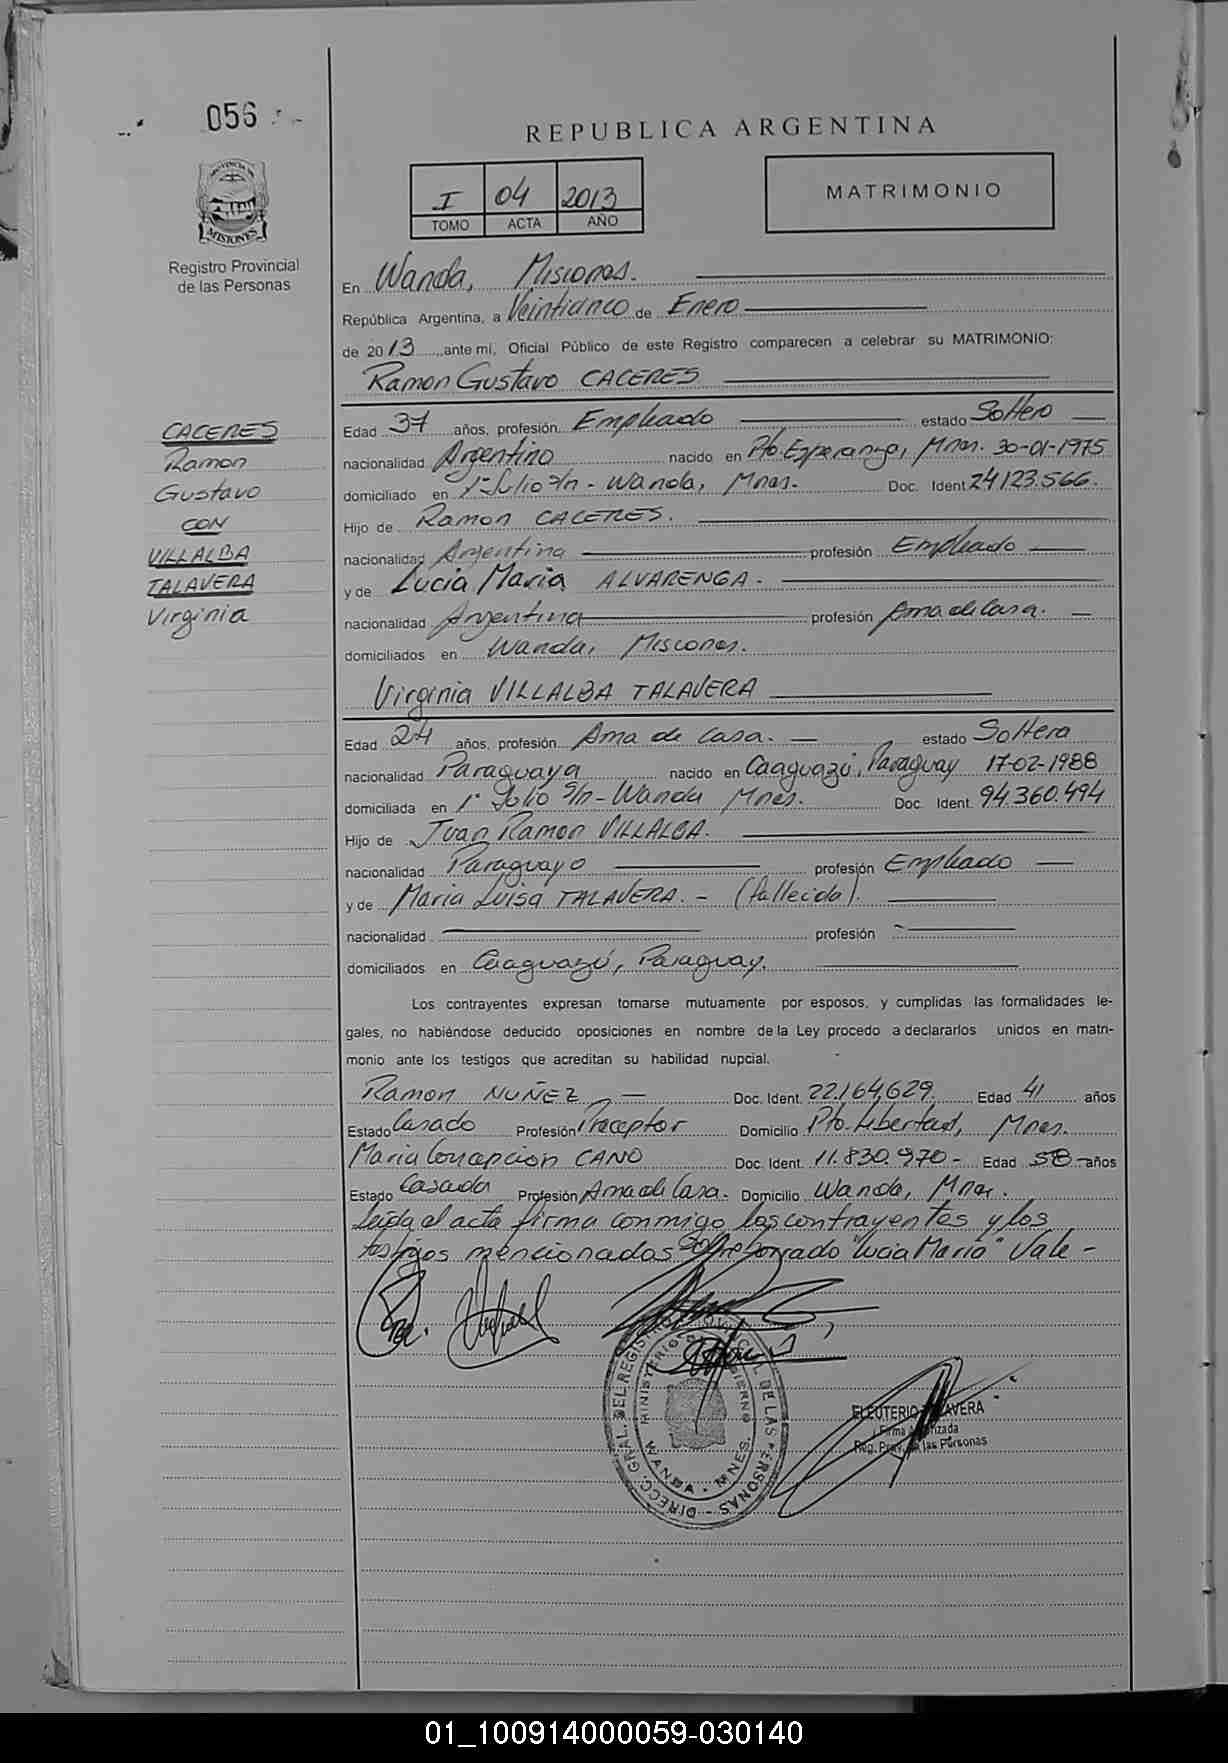 056
REPUBLICA ARGENTINA
I 04 2013
TOMO ACTA AÑO
MATRIMONIO
PROVINCIA DE
MISIONES
Registro Provincial
de las Personas
En Wanda, Misiones.
República Argentina, a Veinticinco de Enero
de 2013 ante mi, Oficial Público de este Registro comparecen a celebrar su MATRIMONIO:
Ramon Gustavo CACERES
CACERES
Ramon
Gustavo
CON
VILLALBA
TALAVERA
Virginia
Edad 37 años, profesión Empleado estado Soltero
nacionalidad Argentino nacido en Pto. Esperanza, Mnes. 30-01-1975
domiciliado en 1º Julio s/n - Wanda, Mnes. Doc. Ident 24123.566.
Hijo de Ramon CACERES.
nacionalidad Argentina profesión Empleado
y de Lucia Maria ALVARENGA.
nacionalidad Argentina profesión Ama de Casa.
domiciliados en Wanda, Misiones.
Virginia VILLALBA TALAVERA
Edad 24 años, profesión Ama de Casa. estado Soltera
nacionalidad Paraguaya nacido en Caaguazú, Paraguay 17-02-1988
domiciliada en 1º Julio s/n - Wanda Mnes. Doc. Ident. 94.360.494
Hijo de Juan Ramon VILLALBA.
nacionalidad Paraguayo profesión Empleado
y de Maria Luisa TALAVERA. - (fallecida).
nacionalidad profesión
domiciliados en Caaguazú, Paraguay.
Los contrayentes expresan tomarse mutuamente por esposos, y cumplidas las formalidades le-
gales, no habiéndose deducido oposiciones en nombre de la Ley procedo a declararlos unidos en matri-
monio ante los testigos que acreditan su habilidad nupcial.
Ramon NUÑEZ Doc. Ident. 22.164.629. Edad 41 años
Estado Casado Profesión Preceptor Domicilio Pto. Libertad, Mnes.
Maria Concepcion CANO Doc. Ident. 11.830.970 - Edad 58 años
Estado Casada Profesión Ama de Casa. Domicilio Wanda, Mnes.
Leída el acta firma conmigo los contrayentes y los
testigos mencionados Sobreborrado "Lucia Maria" Vale -
DIRECC. GRAL. DEL REGISTRO PROVINCIAL DE LAS PERSONAS
MINISTERIO DE GOBIERNO
WANDA - MNES.
ELEUTERIO TALAVERA
Firma Autorizada
Reg. Prov. de las Personas
01_100914000059-030140